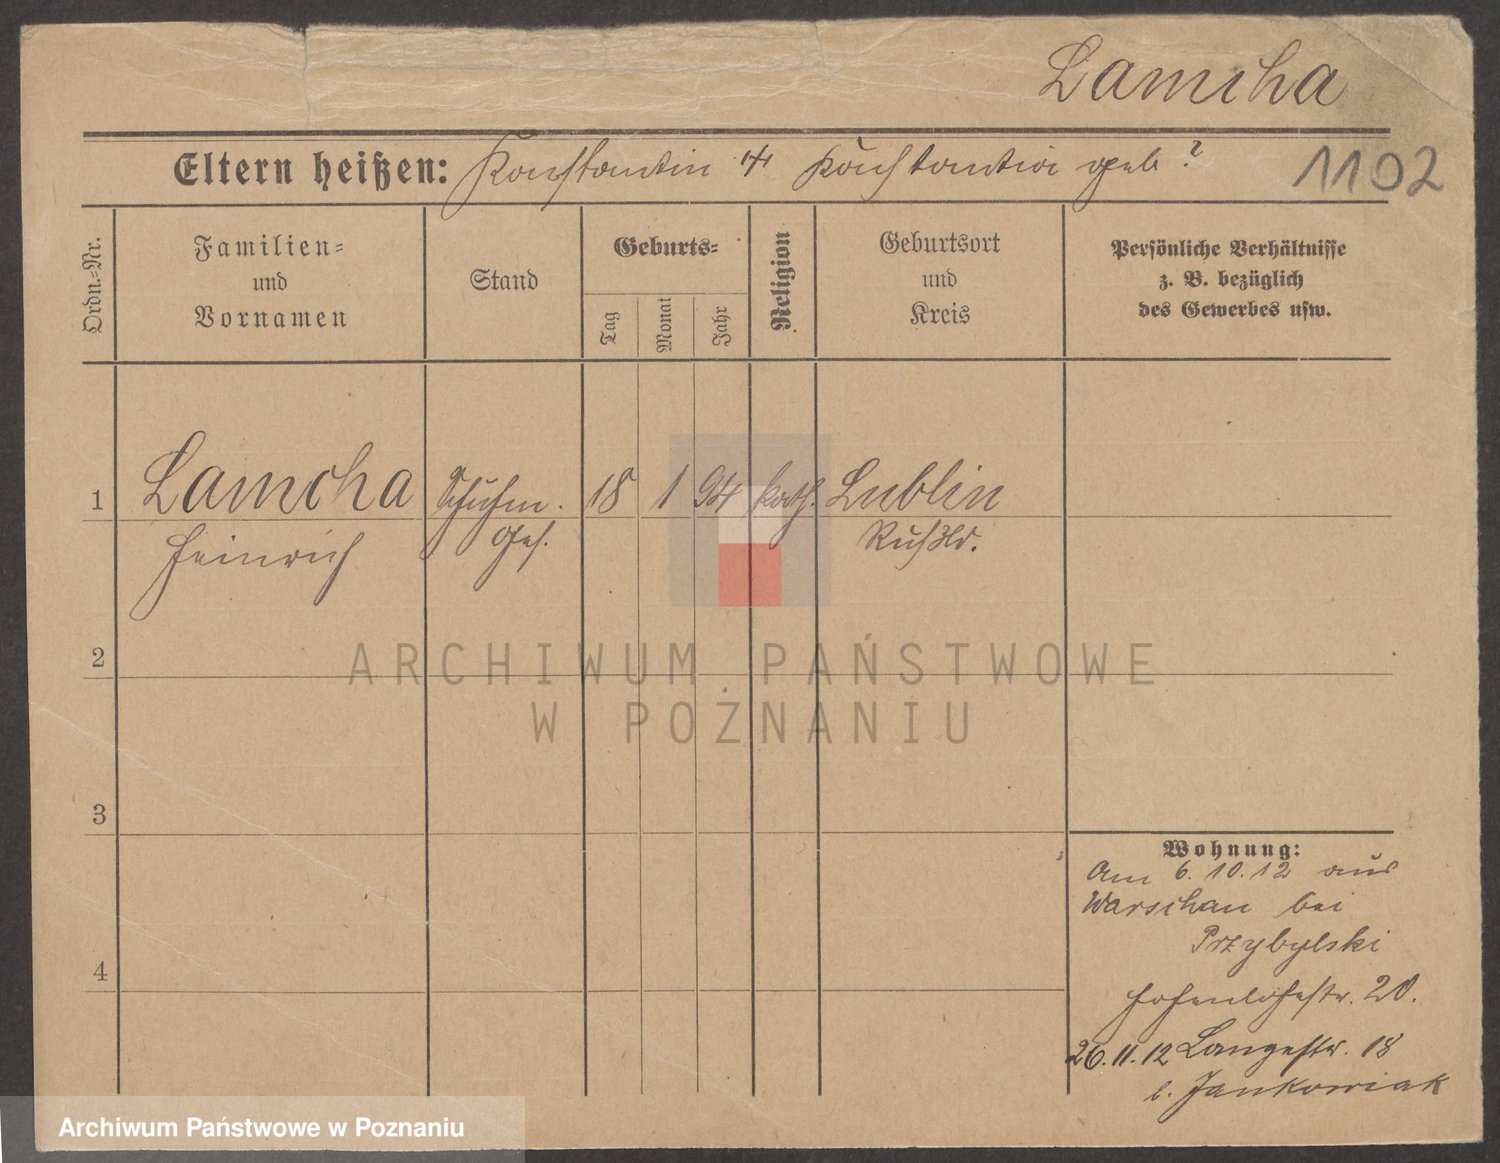 Lamcha
Eltern heißen: Konstantin u Konstantia geb ?
1102
Ordn.-Nr.
Familien-
und
Vornamen
Stand
Geburts-
Tag
Monat
Jahr
Religion
Geburtsort
und
Kreis
Persönliche Verhältnisse
z. B. bezüglich
des Gewerbes usw.
1 Lamcha Schuhm. 18 1 94 kath. Lublin
Heinrich Ges. Rußld.
2
ARCHIWUM PAŃSTWOWE
W POZNANIU
3
4
Wohnung:
Am 6.10.12 aus
Warschau bei
Przybylski
Hohenlohestr. 20.
26.11.12 Langestr. 18
b. Jankowiak
Archiwum Państwowe w Poznaniu